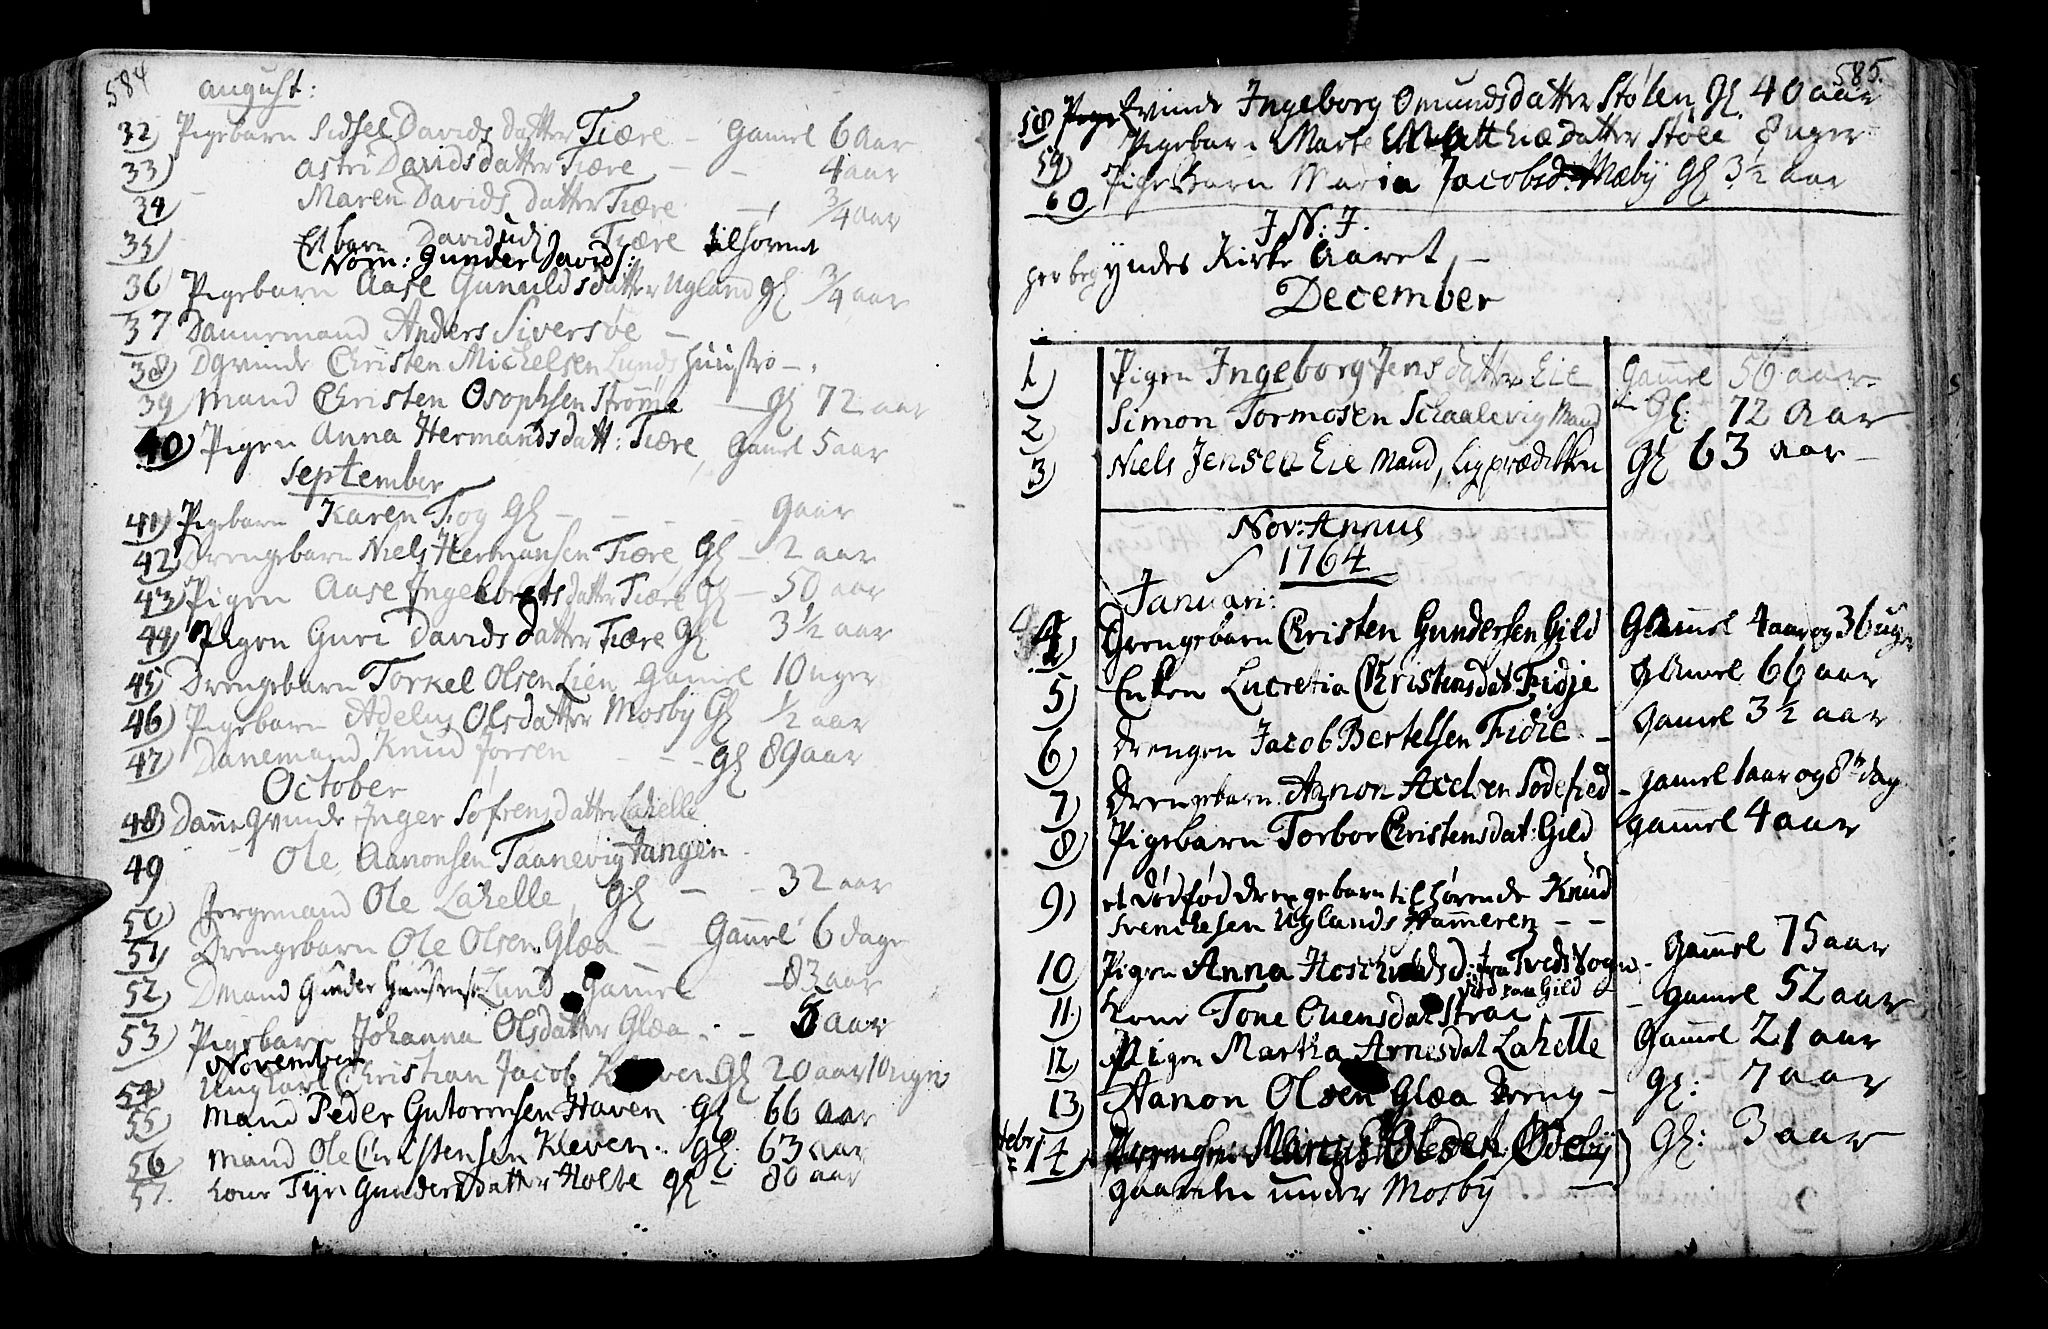 584
august:
32) Pigebarn Sidsel Davids datter Tiære - Gamel 6 Aar
33) Astri Davidsdatter Tiære - - 4 aar
34) Maren Davids datter Tiære - 3/4 aar
35) Et barn Davids Tiære tilhørent
Nom: Gunder Davids:
36) Pigebarn Aase Gunuldsdatter Ugland gl 3/4 aar
37 Dannemand Anders Siversøe -
38) Dqvinde Christen Michelsen Lunds Huustro -
39) Mand Christen Osophsen Strømme - gl 72 aar
40) Pigen Anna Hermandsdatt: Tiære, Gamel 5 aar
September
41) Pigebarn Karen Gl - - - 9 aar
42) Drengebarn Niels Hermansen Tiære, gl - 2 aar
43) Pigen Aase Ingebretsdatter Tiære gl - 50 aar
44) Pigen Guri Davids datter Tiære gl 3 1/2 aar
45) Drengebarn Torkel Olsen Lien Gamel 10 uger
46) Pigebarn Adelus Olsdatter Mosbÿ Gl 1/2 aar
47) Danemand Knud Jorsen - - - gl 89 aar
October
48) Danneqvinde Inger Sofrensdatter Lahelle
49 Ole Aanonsen Taanevig Tangen
50) Ole Lahelle, gl - - 32 aar
51) Drengebarn Ole Olsen Glæa - Gamel 6 dage
52) Dmand Gunder Lund Gamel - 83 aar
53) Pigebarn Johanna Olsdatter Glæa - - 5 aar
November
54) Ung Karl Christian Jacob gl 20 aar 10 uger
55) Mand Peder Gutormsen Haven gl 66 aar
56) Mand Ole Christensen Kleven: gl: 63 aar
57. Kone Tyri Gundersdatter Holte gl - 80 aar
585.
58 Qvinde Ingeborg Omundsdatter Stølen, gl 40 aar
59) Pigebarn Marte Matthiædatter Støle 8 uger
60) Pigebarn Maria Jacobsd: Mæbÿ gl 3 1/2 aar
J. N. J.
her begyndes Kirke Aaret, -
December
1) Pigen Ingeborg Jens datter Eie Gamel 56 aar
2) Simon Tormosen Schaalevig Mand Gl: 72 Aar
3) Niels Jensen Eie Mand, Ligprædiken gl 63 aar -
Nov: Annus
1764
Januari:
4) Drengebarn Christen Gundersen Gild Gamel 4 aar og 36 uger
5) Enken Lucretia Christensdat: Fidje gamel 66 aar
6) drengen Jacob Bertelsen Fidie - gamel 3 1/2 aar
7) drengebarn Aanon Axelsen Sødefied - gamel 1 aar og 8te dag
8) Pigebarn Torbor Christensdat: Gild gamel 4 aar
9) et dødfød drengebarn tilhørende Knud
Svenchesen Uglands Hammeren - -
10) Pigen Anna Tveds Sogn - Gamel 75 aar
død paa Gild
11.) Kone Tone Evensdat Strai - gamel 52 aar
12) Pigen Martha Arnesdat Lahelle Gamel 21 aar
13) Aanon Olsen Glæa Dreng - gl: 7 aar
Febr: 14) Drengen Olesen Ødebÿ gl: 3 aar
gaarden under Mosbÿ